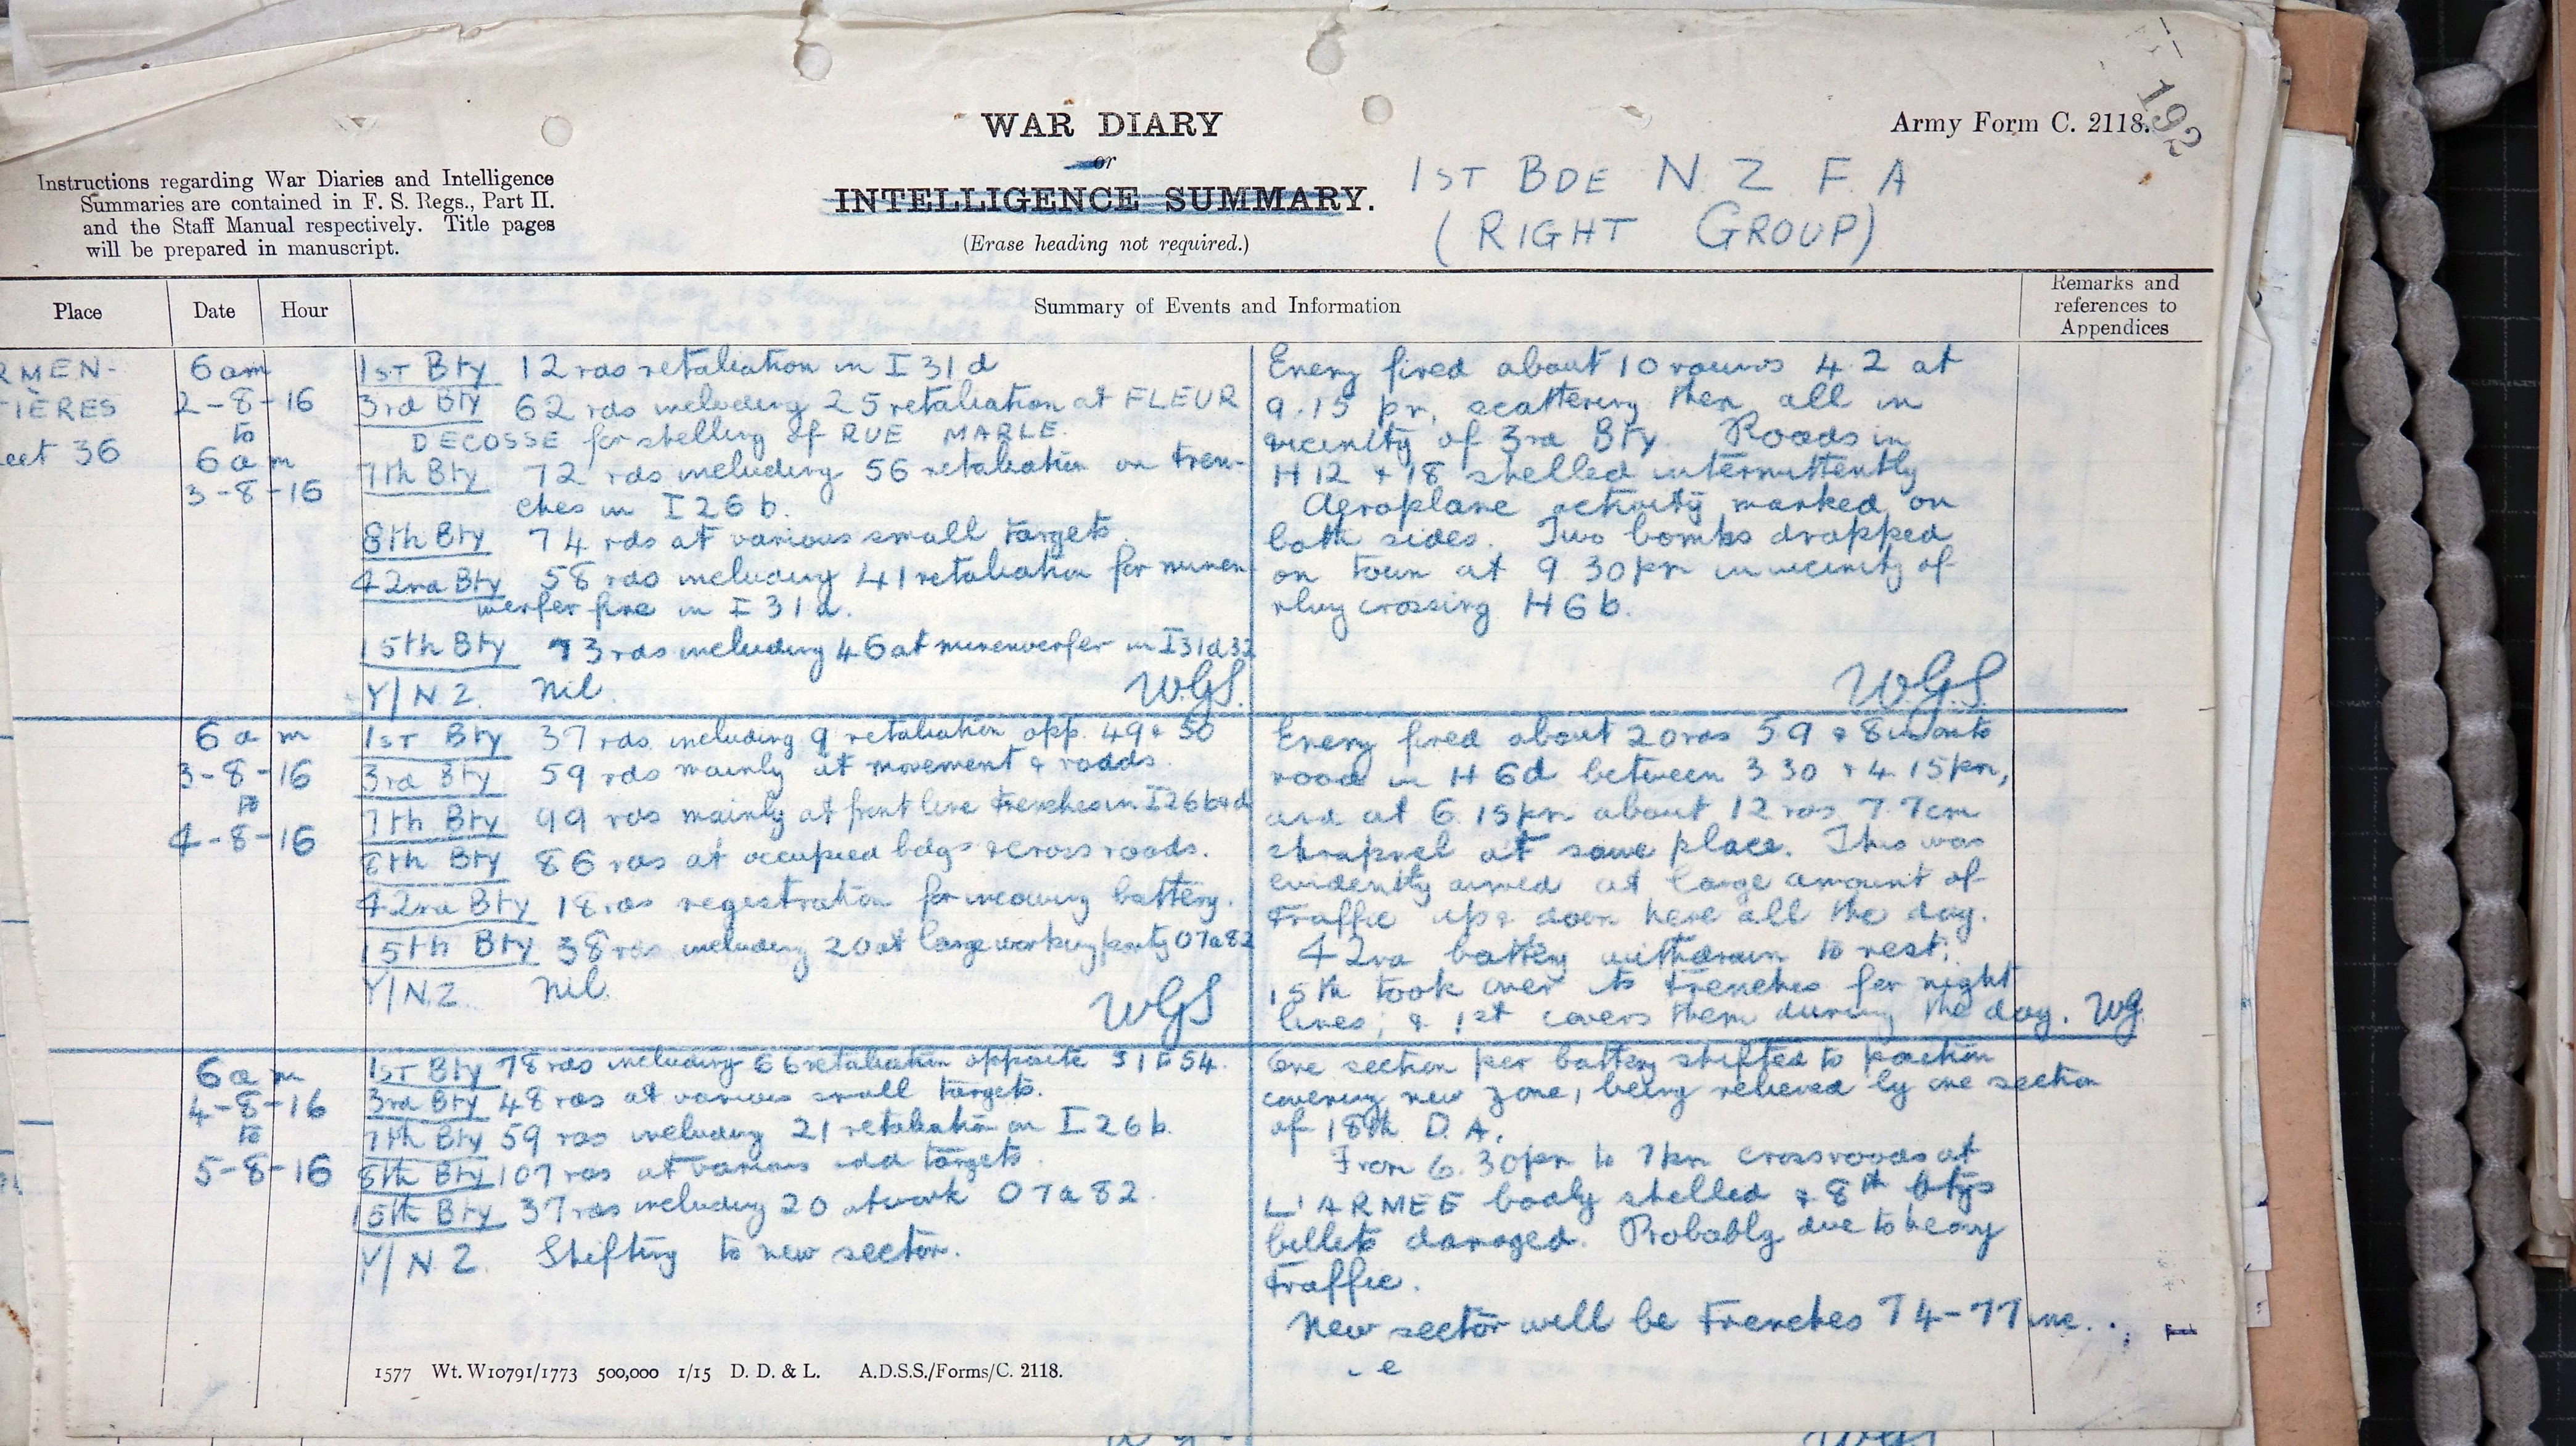 192
WAR DIARY
or
INTELLIGENCE SUMMARY.
(Erase heading not required.)
Army Form C. 2118.
Instructions regarding War Diaries and Intelligence
Summaries are contained in F. S. Regs., Part II.
and the Staff Manual respectively. Title pages
will be prepared in manuscript.
1ST BDE N Z F. A
(RIGHT GROUP)
Place
Date
Hour
Summary of Events and Information
Remarks and
references to
Appendices
RMEN-
TIÈRES
eet 36
6 am
2-8-16
to
6 a m
3-8-16
1ST Bty 12 rds retaliation in I 31 d
3rd Bty 62 rds including 25 retaliation at FLEUR
DECOSSE for shelling of RUE MARLE.
7th Bty 72 rds including 56 retaliation on tren-
ches in I 26 b.
8th Bty 74 rds at various small targets.
42nd Bty 58 rds including 41 retaliation for minen
werfer fire in I 31 d.
15th Bty 73 rds including 46 at minenwerfer in I31d32
Y/N Z. Nil.
W.G.S.
Enemy fired about 10 rounds 4.2 at
9.15 pm, scattering them all in
vicinity of 3rd Bty. Roads in
H 12 & 18 shelled intermittently
Aeroplane activity marked on
both sides. Two bombs dropped
on town at 9.30 pm in vicinity of
rlwy crossing H 6 b.
W.G.S.
6 a m
3-8-16
to
4-8-16
1ST Bty 37 rds. including 9 retaliation opp. 49 & 50
3rd Bty 59 rds mainly at movement & roads.
7th Bty 99 rds mainly at front line trenches in I26b&d
8th Bty 86 rds at occupied bdgs & cross roads.
42nd Bty 18 rds registration for incoming battery.
15th Bty 38 rds including 20 at large working party O7a82
Y/N.Z. Nil.
WGS
Enemy fired about 20 rds 59 & 8in onto
road in H 6d between 3 30 & 4. 15 pm,
and at 6. 15 pm about 12 rds 7.7cm
shrapnel at same place. This was
evidently aimed at large amount of
traffic up & down here all the day.
42nd battery withdrawn to rest;
15th took over its trenches for night
lines; & 1st covers them during the day. WG
6 a m
4-8-16
to
5-8-16
1ST Bty 78 rds including 66 retaliation opposite 51 & 54.
3rd Bty 48 rds at various small targets.
7th Bty 59 rds including 21 retaliation on I 26 b.
8th Bty 107 rds at various odd targets.
15th Bty 37 rds including 20 at work O7a82.
Y/N Z. Shifting to new sector.
One section per battery shifted to position
covering new zone, being relieved by one section
of 18th D. A.
From 6. 30pm to 7pm crossroads at
L'ARMEE badly shelled & 8th btys
billets damaged. Probably due to heavy
traffic.
New sector will be Trenches 74-77 inc.
1577 Wt. W10791/1773 500,000 1/15 D. D. & L. A.D.S.S./Forms/C. 2118.